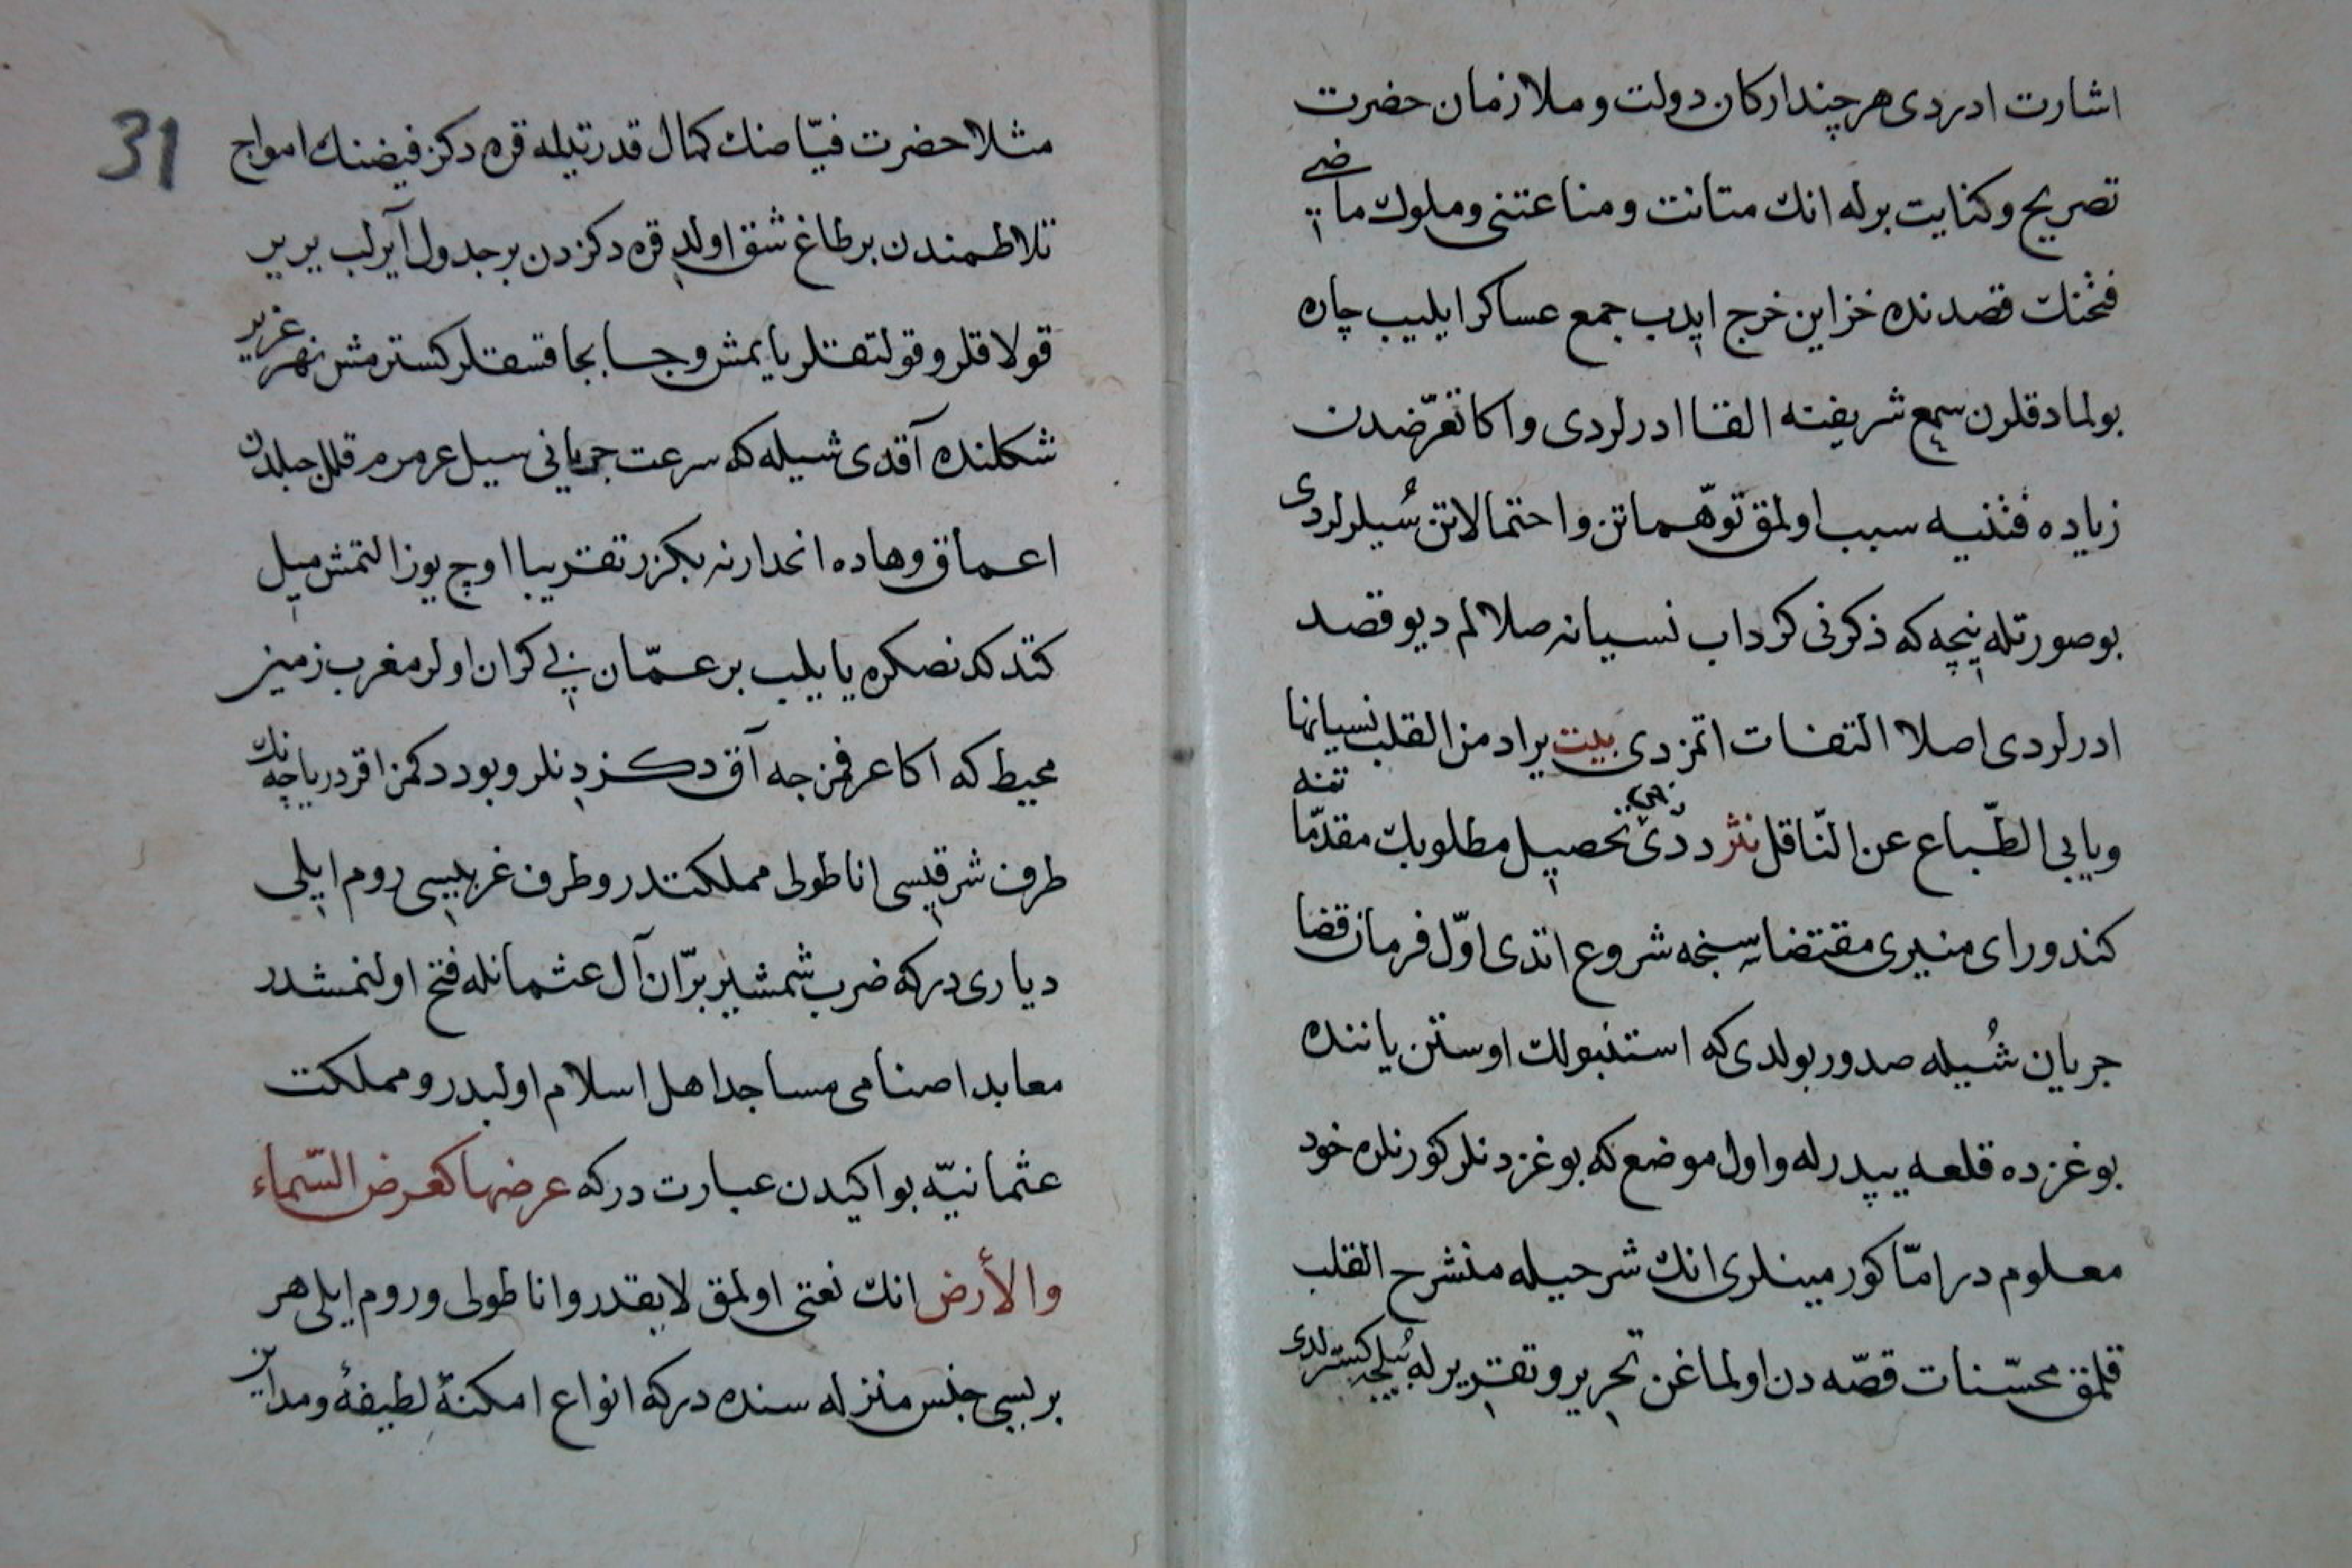 اشارت ادردی هر چند ارکان دولت و ملازمان حضرت
تصریح و کنایت برله انك متانت و مناعتنی و ملوك ماضی
فتحنك قصدنده خزاین خرج ایدب جمع عساکر ایلیب چاره
بولمادقلرن سمع شریفنه القا ادرلردی و اکا تعرّضدن
زیاده فتنیه سبب اولمق توهّماتن و احتمالاتن سُیلرلردی
بو صورتله نیچه که ذکرنی کرداب نسیانه صلالم دیو قصد
ادرلردی اصلا التفات اتمزدی بیت یراد من القلب نسیانها
ویابی الطّباع عن النّاقل نثر ددی تحصیل مطلوبك مقدّماتنه
کندو رای منیری مقتضاسنجه شروع اتدی اوّل فرمان قضا
جریان شُیله صدور بولدی که استنبولك اوستن یاننده
بوغزده قلعه یپدرله و اول موضع که بوغز دنلر کورنلره خود
معلوم در امّا کورمینلری انك شرحیله منشرح القلب
قلمق محسّنات قصّه دن اولماغن تحریر و تقریر له سُیلجه کسترلدی
31
مثلا حضرت فیّاضنك کمال قدرتیله قره دکز فیضنك امواج
تلاطمندن بر طاغ شق اولدی قره دکزدن بر جدول آیرلب یر یر
قولاقلر و قولتقلر یایمش و جا بجا قسقلر کسترمش نهر غزیر
شکلنده آقدی شیله که سرعت جریانی سیل عرمرم قلل جبلدن
اعماق وهاده انحدارنه بکزر تقریبا اوچ یوز التمش میل
کتدکدنصکره یایلب بر عمّان بی کران اولر مغرب زمین
محیط که اکا عرفمزجه آق دکز دنلر و بو ددکمز اقر دریاچه نك
طرف شرقیسی اناطولی مملکتدر و طرف غربیسی روم ایلی
دیاری در که ضرب شمشیر برّان آل عثمانله فتح اولنمشدر
معابد اصنامی مساجد اهل اسلام اولبدر و مملکت
عثمانیّه بو اکیدن عبارت در که عرضها کعرض السّماء
والأرض انك نعتی اولمق لایقدر و اناطولی و روم ایلی هر
بریسی جنس منزله سنده در که انواع امکنهٔ لطیفهٔ و مداین